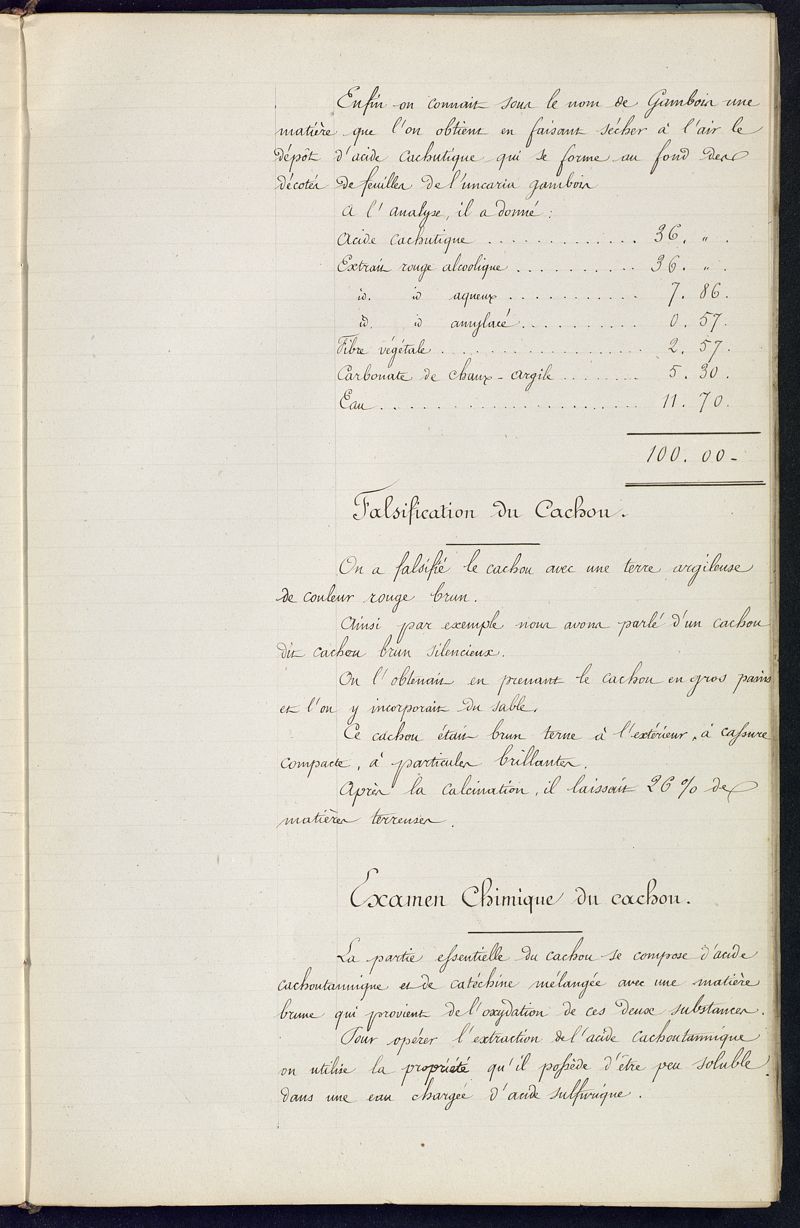 Enfin on connait sous le nom de Gambois une
matière que l'on obtient en faisant sécher à l'air le
dépôt d'acide cachutique qui se forme au fond des
décotés de feuilles de l'uncaria gambois
A l'analyse, il a donné :
Acide cachutique . . . . . . . . . . . . . 36. " .
Extrait rouge alcoolique . . . . . . . . . . 36. " .
id. id aqueux . . . . . . . . . . . 7. 86.
id. id amylacé . . . . . . . . . . 0. 57.
Fibre végétale . . . . . . . . . . . . . . . . 2. 57.
Carbonate de chaux - argile . . . . . . . 5. 30.
Eau . . . . . . . . . . . . . . . . . . . . . . 11. 70.
100. 00 -
Falsification du Cachou.
On a falsifié le cachou avec une terre argileuse
de couleur rouge brun.
Ainsi par exemple nous avons parlé d'un cachou
dit cachou brun silencieux.
On l'obtenait en prenant le cachou en gros pains
et l'on y incorporait du sable.
Ce cachou était brun terne à l'extérieur, à cassure
compacte, à particules brillantes.
Après la calcination, il laissait 26 % de
matières terreuses.
Examen Chimique du cachou.
La partie essentielle du cachou se compose d'acide
cachoutannique et de catéchine mélangée avec une matière
brune qui provient de l'oxydation de ces deux substances.
Pour opérer l'extraction de l'acide cachoutannique
on utilise la propriété qu'il possède d'être peu soluble
dans une eau chargée d'acide sulfurique.